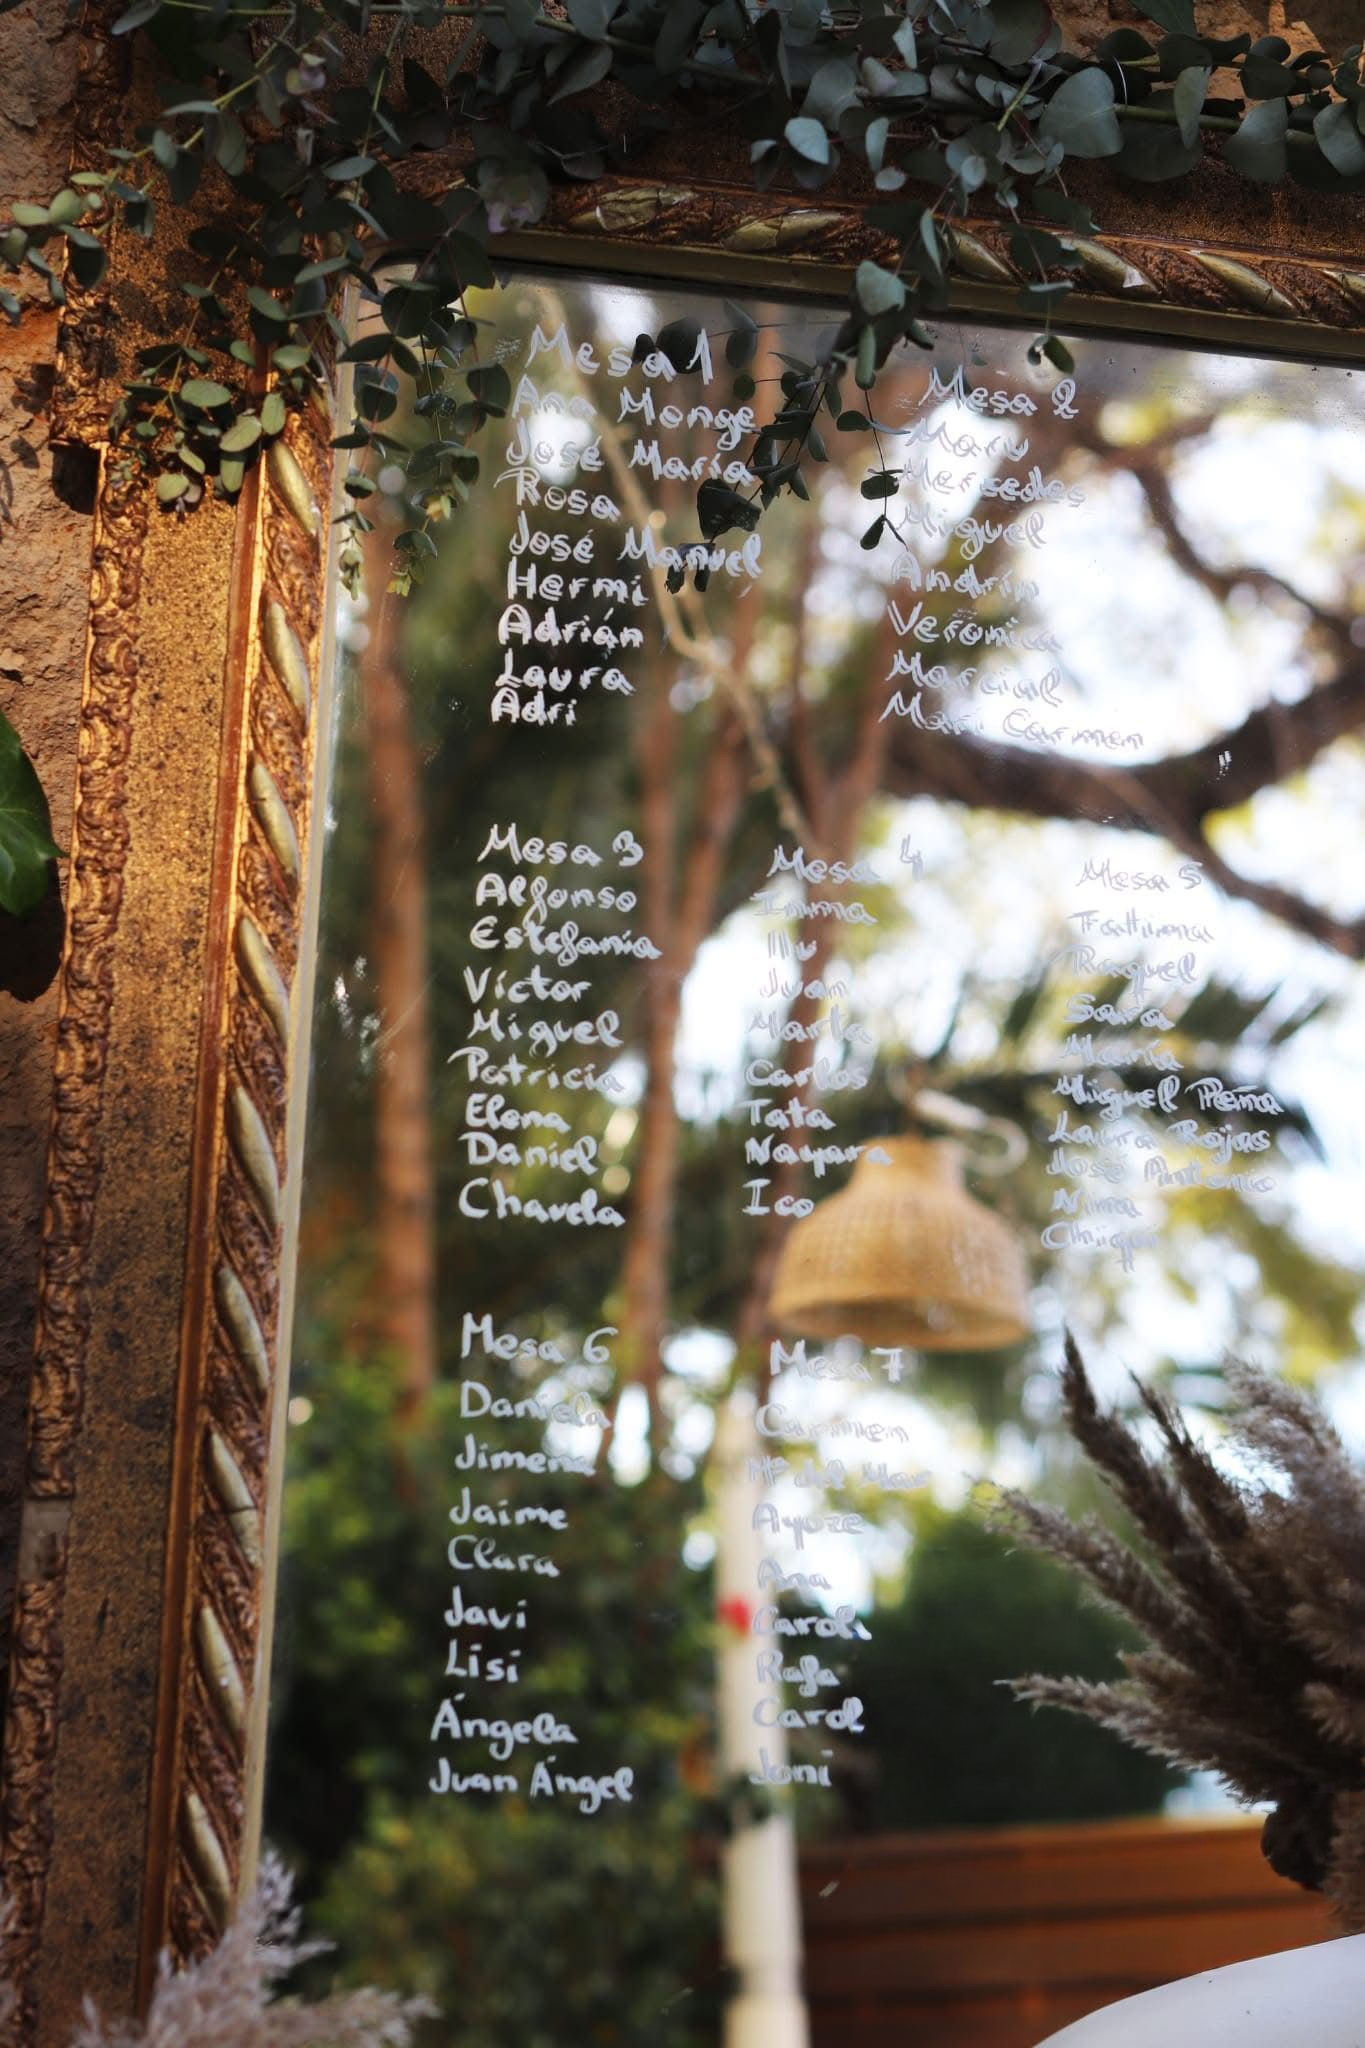 Mesa 1
Ana Monge
José María
Rosa
José Manuel
Hermi
Adrián
Laura
Adri
Mesa 2
Maru
Mersedes
Miguel
Andrín
Verónica
Marcial
Mari Carmen
Mesa 3
Alfonso
Estefanía
Víctor
Miguel
Patricia
Elena
Daniel
Chavela
Mesa 4
Inma
Juan
Marta
Carlos
Tata
Nayara
Ico
Mesa 5
Fátima
Raquel
Sara
María
Miguel Peña
Laura Rojas
José Antonio
Nima
Chiqui
Mesa 6
Daniela
Jimena
Jaime
Clara
Javi
Lisi
Ángela
Juan Ángel
Mesa 7
Carmen
Mª del Mar
Ayoze
Ana
Carol
Rafa
Carol
Joni